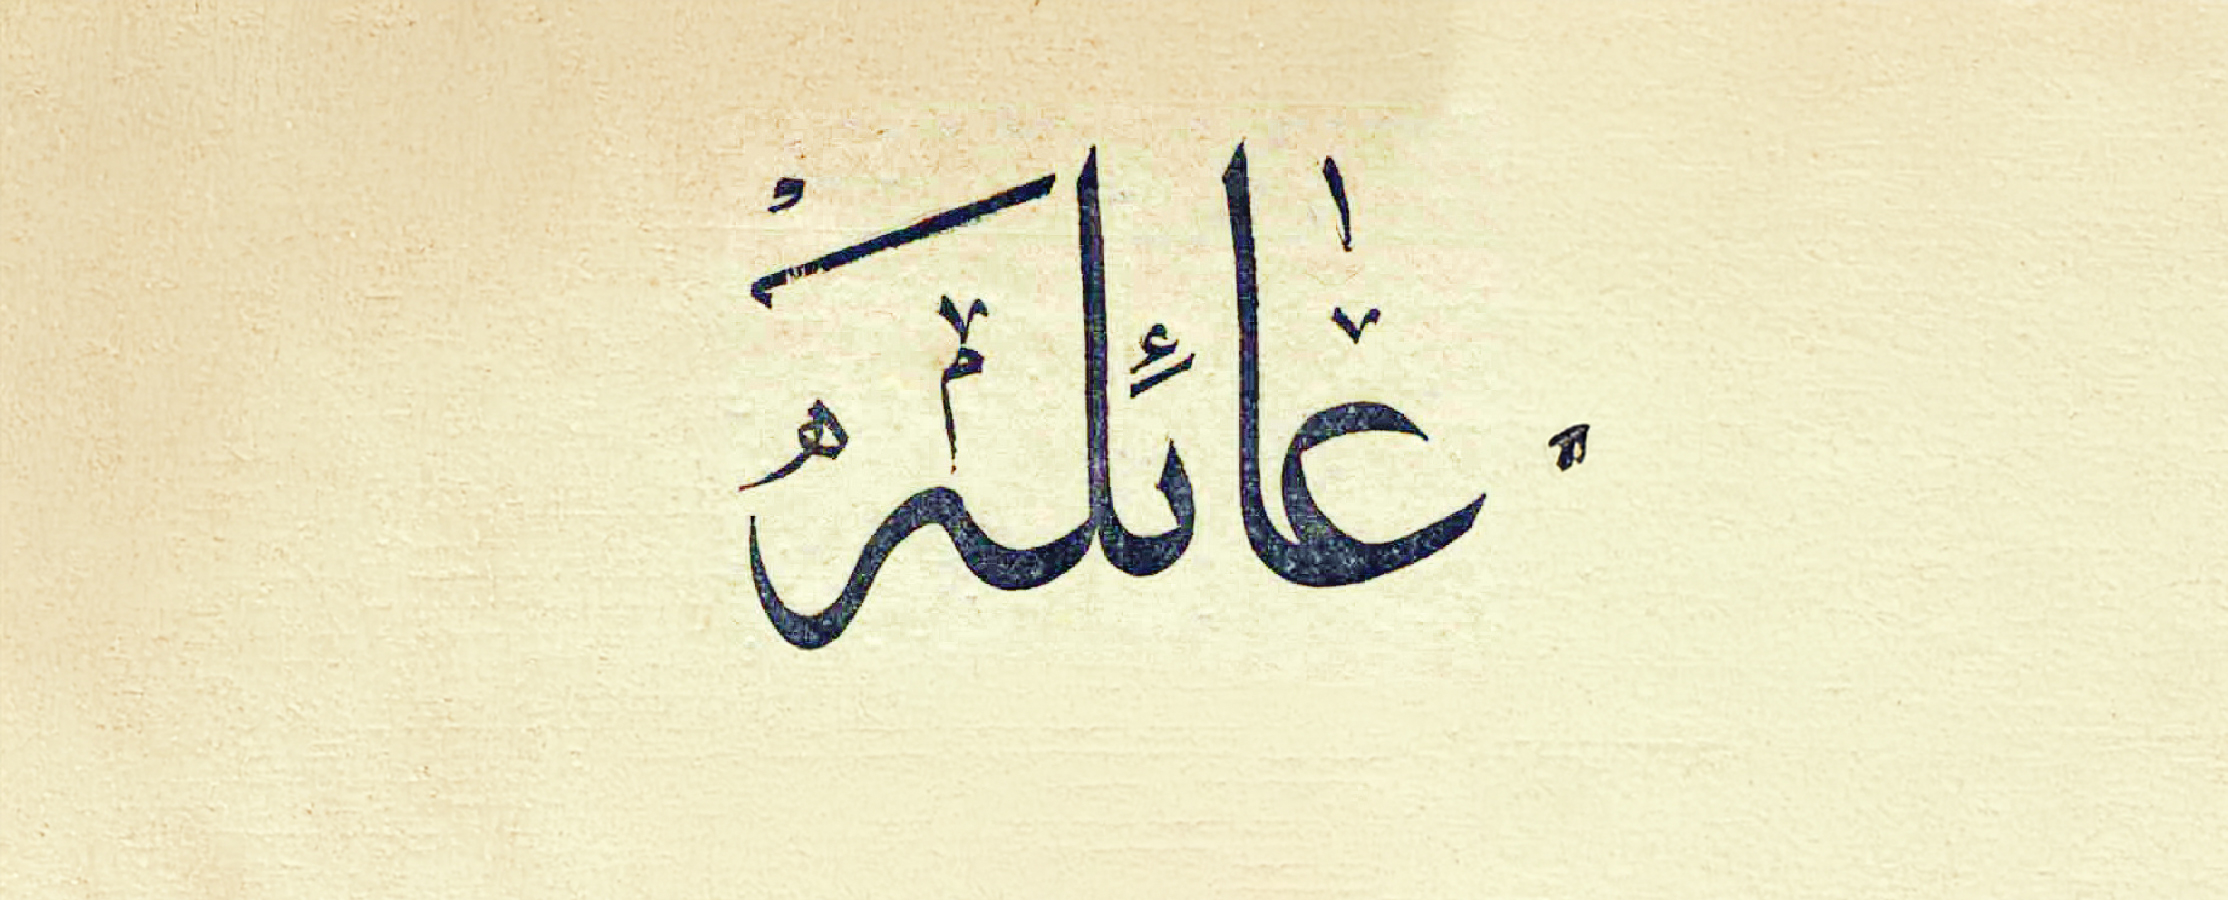 عائله